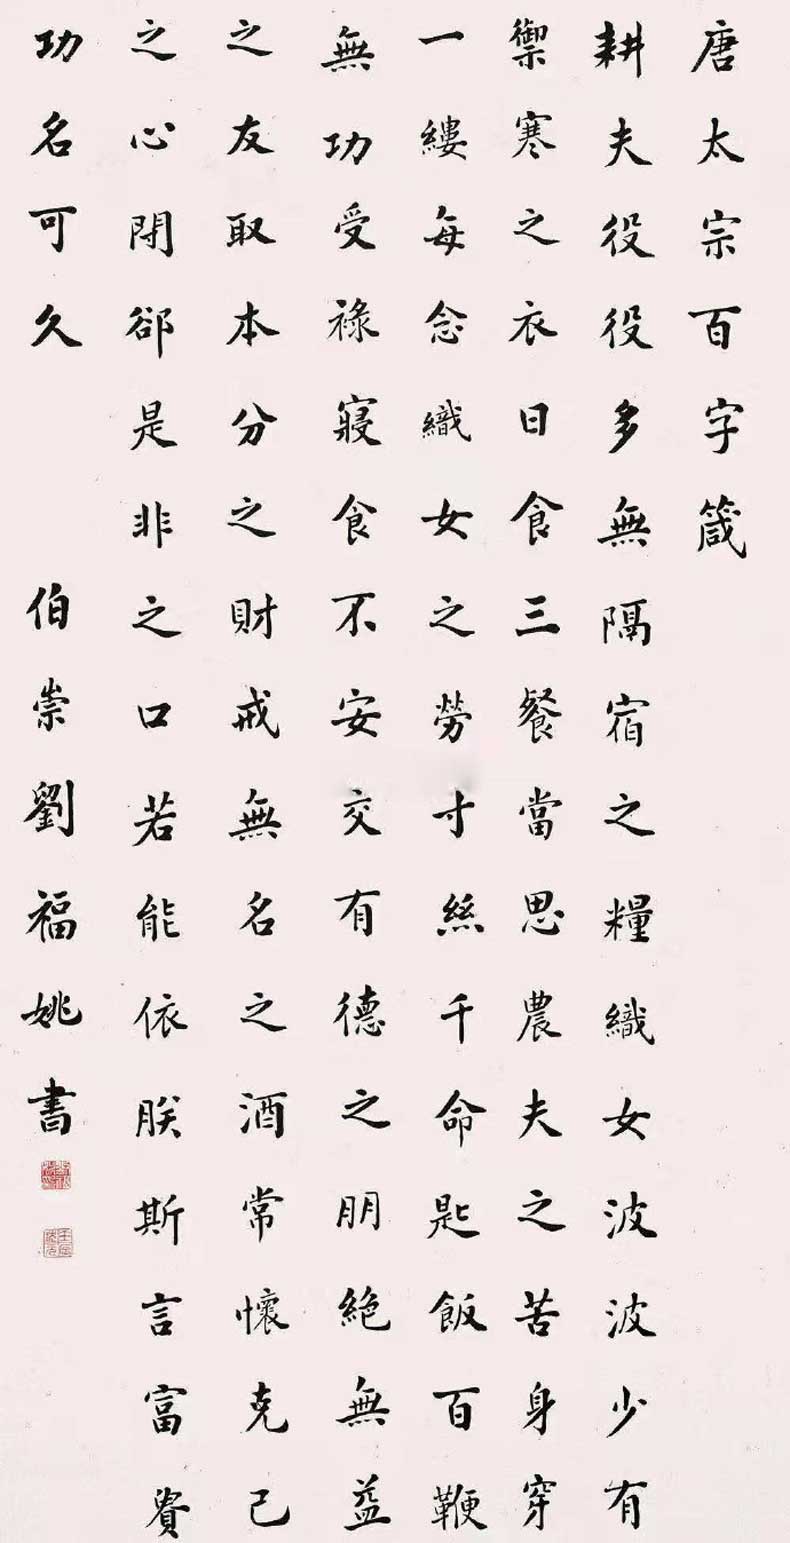 唐太宗百字箴
耕夫役役多無隔宿之糧織女波波少有
禦寒之衣日食三餐當思農夫之苦身穿
一縷每念織女之勞寸絲千命匙飯百鞭
無功受祿寢食不安交有德之朋絕無益
之友取本分之財戒無名之酒常懷克己
之心閉卻是非之口若能依朕斯言富貴
功名可久
伯崇劉福姚書